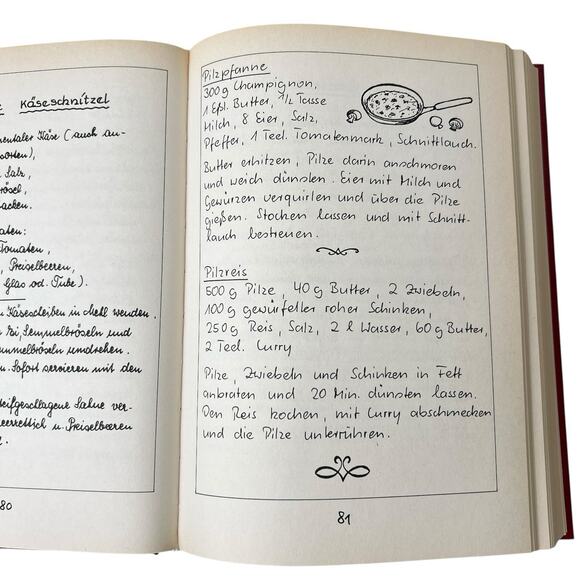 Käseschnitzel
mentaler Käse (auch an-
sorten),
Salz,
brösel,
backen.
aten:
Tomaten,
, Preiselbeeren,
Glas od. Tube).
n Käsescheiben in Mehl wenden.
n Ei, Semmelbröseln und
mmelbröseln umdrehen.
n. Sofort servieren mit den
teifgeschlagene Sahne ver-
eerrettich u. Preiselbeeren
80
Pilzpfanne
300 g Champignon,
1 Eßl. Butter, 1/2 Tasse
Milch, 8 Eier, Salz,
Pfeffer, 1 Teel. Tomatenmark, Schnittlauch.
Butter erhitzen, Pilze darin anschmoren
und weich dünsten. Eier mit Milch und
Gewürzen verquirlen und über die Pilze
gießen. Stocken lassen und mit Schnitt-
lauch bestreuen.
Pilzreis
500 g Pilze, 40 g Butter, 2 Zwiebeln,
100 g gewürfelter roher Schinken,
250 g Reis, Salz, 2 l Wasser, 60 g Butter,
2 Teel. Curry
Pilze, Zwiebeln und Schinken in Fett
anbraten und 20 Min. dünsten lassen.
Den Reis kochen, mit Curry abschmecken
und die Pilze unterrühren.
81